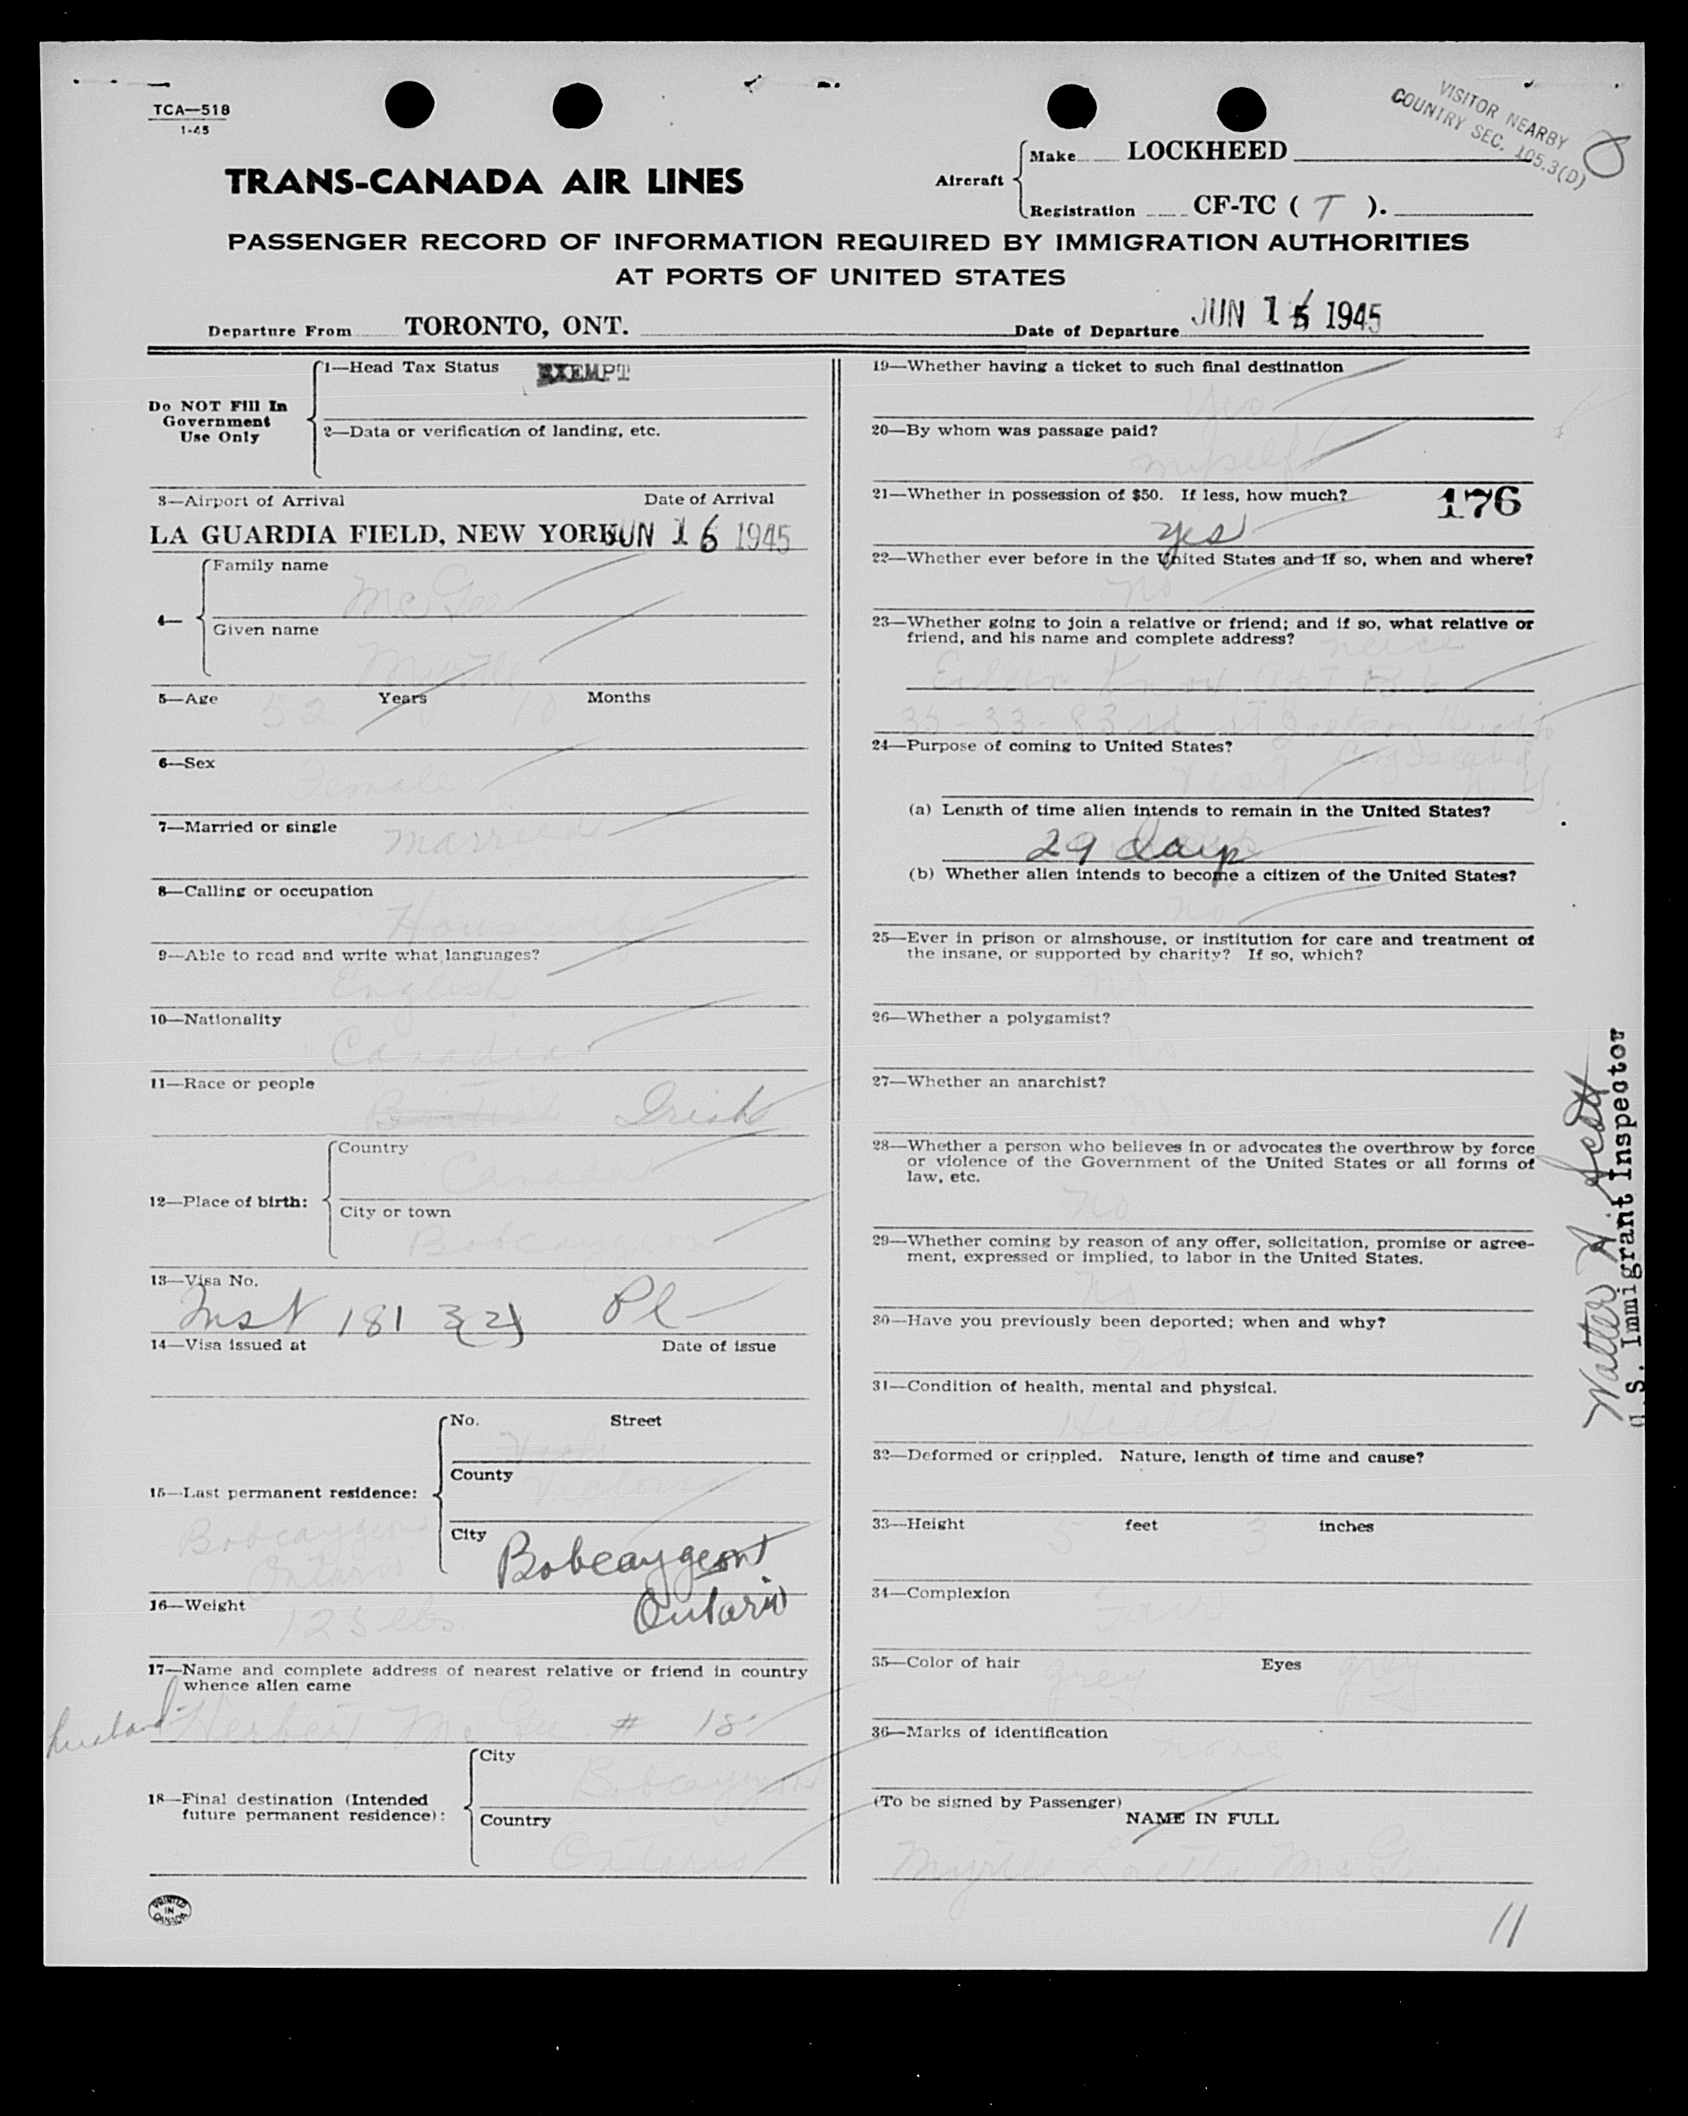 TCA—518
1-45
VISITOR NEARBY
COUNTRY SEC. 105.3(D)
TRANS-CANADA AIR LINES
Aircraft
Make LOCKHEED
Registration CF-TC ( T ).
PASSENGER RECORD OF INFORMATION REQUIRED BY IMMIGRATION AUTHORITIES
AT PORTS OF UNITED STATES
Departure From TORONTO, ONT. Date of Departure JUN 16 1945
Do NOT Fill In
Government
Use Only
1—Head Tax Status EXEMPT
2—Data or verification of landing, etc.
3—Airport of Arrival Date of Arrival
LA GUARDIA FIELD, NEW YORK JUN 16 1945
4—
Family name
McGee
Given name
Myrtle
5—Age 52 Years 10 Months
6—Sex
Female
7—Married or single
Married
8—Calling or occupation
Housewife
9—Able to read and write what languages?
English
10—Nationality
Canadian
11—Race or people
British Irish
12—Place of birth:
Country
Canada
City or town
Bobcaygeon
13—Visa No.
Inst 181 3(2) Pl
14—Visa issued at Date of issue
15—Last permanent residence:
No. Street
County
Victoria
City
Bobcaygeon
Ontario
Bobcaygeon
Ontario
16—Weight
123 lbs
17—Name and complete address of nearest relative or friend in country
whence alien came
husband Herbert McGee # 18
18—Final destination (Intended
future permanent residence):
City
Bobcaygeon
Country
Ontario
PRINTED
IN
CANADA
19—Whether having a ticket to such final destination
Yes
20—By whom was passage paid?
myself
21—Whether in possession of $50. If less, how much? 176
yes
22—Whether ever before in the United States and if so, when and where?
No
23—Whether going to join a relative or friend; and if so, what relative or
friend, and his name and complete address?
neice
Eileen Knox Apt
35-33-83rd St Jackson Heights
24—Purpose of coming to United States?
Long Island
Visit N.Y.
(a) Length of time alien intends to remain in the United States?
29 days
(b) Whether alien intends to become a citizen of the United States?
no
25—Ever in prison or almshouse, or institution for care and treatment of
the insane, or supported by charity? If so, which?
no
26—Whether a polygamist?
No
27—Whether an anarchist?
No
28—Whether a person who believes in or advocates the overthrow by force
or violence of the Government of the United States or all forms of
law, etc.
No
29—Whether coming by reason of any offer, solicitation, promise or agree-
ment, expressed or implied, to labor in the United States.
No
30—Have you previously been deported; when and why?
No
31—Condition of health, mental and physical.
Healthy
32—Deformed or crippled. Nature, length of time and cause?
33—Height 5 feet 3 inches
34—Complexion
35—Color of hair grey Eyes grey
36—Marks of identification
none
(To be signed by Passenger)
NAME IN FULL
Myrtle Loretta McGee
11
Walter A. Scott
U.S. Immigrant Inspector